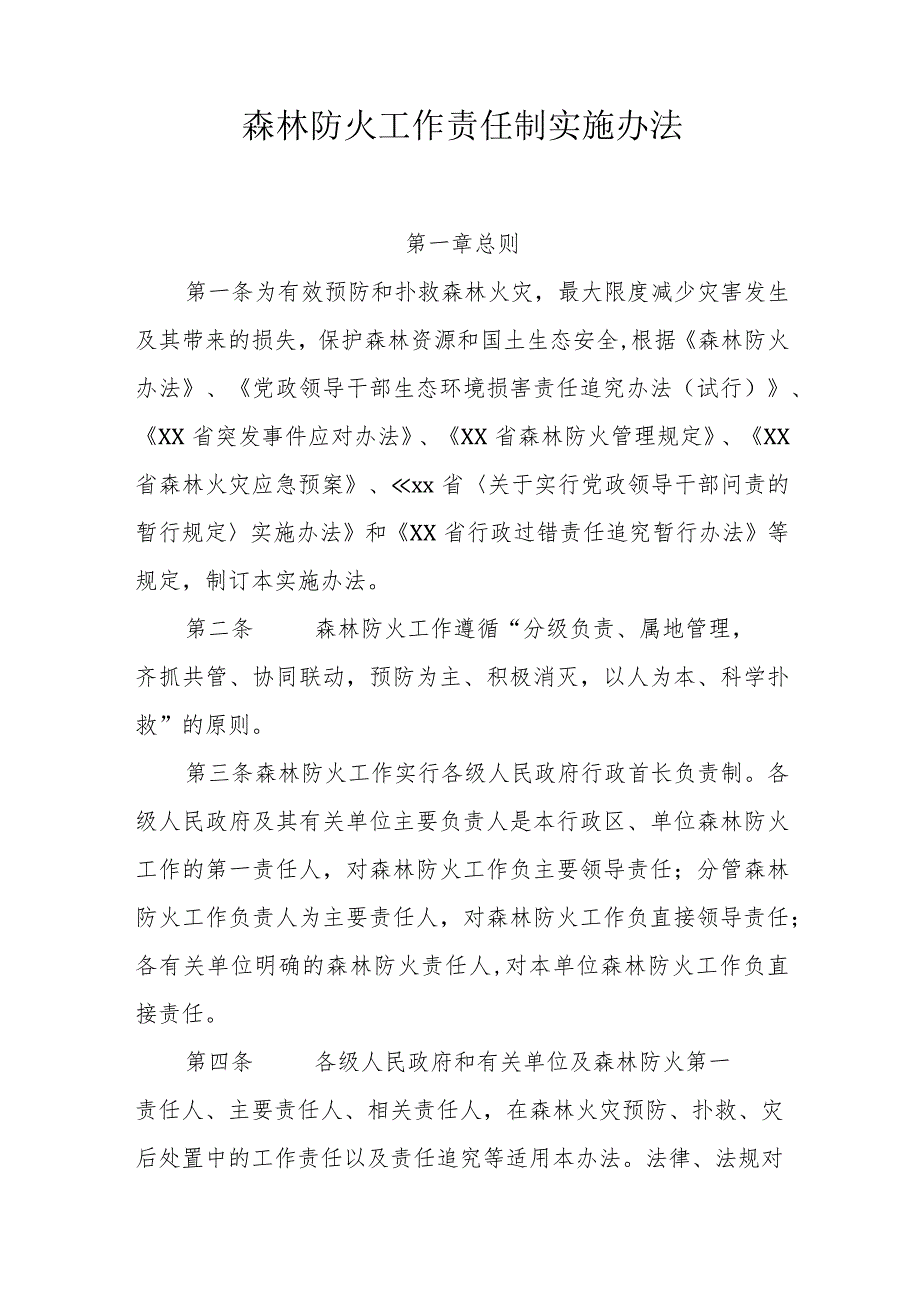 森林防火工作责任制实施办法
第一章总则
第一条为有效预防和扑救森林火灾，最大限度减少灾害发生
及其带来的损失，保护森林资源和国土生态安全,根据《森林防火
办法》、《党政领导干部生态环境损害责任追究办法（试行）》、
《XX 省突发事件应对办法》、《XX 省森林防火管理规定》、《XX
省森林火灾应急预案》、≪xx 省〈关于实行党政领导干部问责的
暂行规定〉实施办法》和《XX 省行政过错责任追究暂行办法》等
规定，制订本实施办法。
第二条 森林防火工作遵循“分级负责、属地管理，
齐抓共管、协同联动，预防为主、积极消灭，以人为本、科学扑
救”的原则。
第三条森林防火工作实行各级人民政府行政首长负责制。各
级人民政府及其有关单位主要负责人是本行政区、单位森林防火
工作的第一责任人，对森林防火工作负主要领导责任；分管森林
防火工作负责人为主要责任人，对森林防火工作负直接领导责任；
各有关单位明确的森林防火责任人,对本单位森林防火工作负直
接责任。
第四条 各级人民政府和有关单位及森林防火第一
责任人、主要责任人、相关责任人，在森林火灾预防、扑救、灾
后处置中的工作责任以及责任追究等适用本办法。法律、法规对